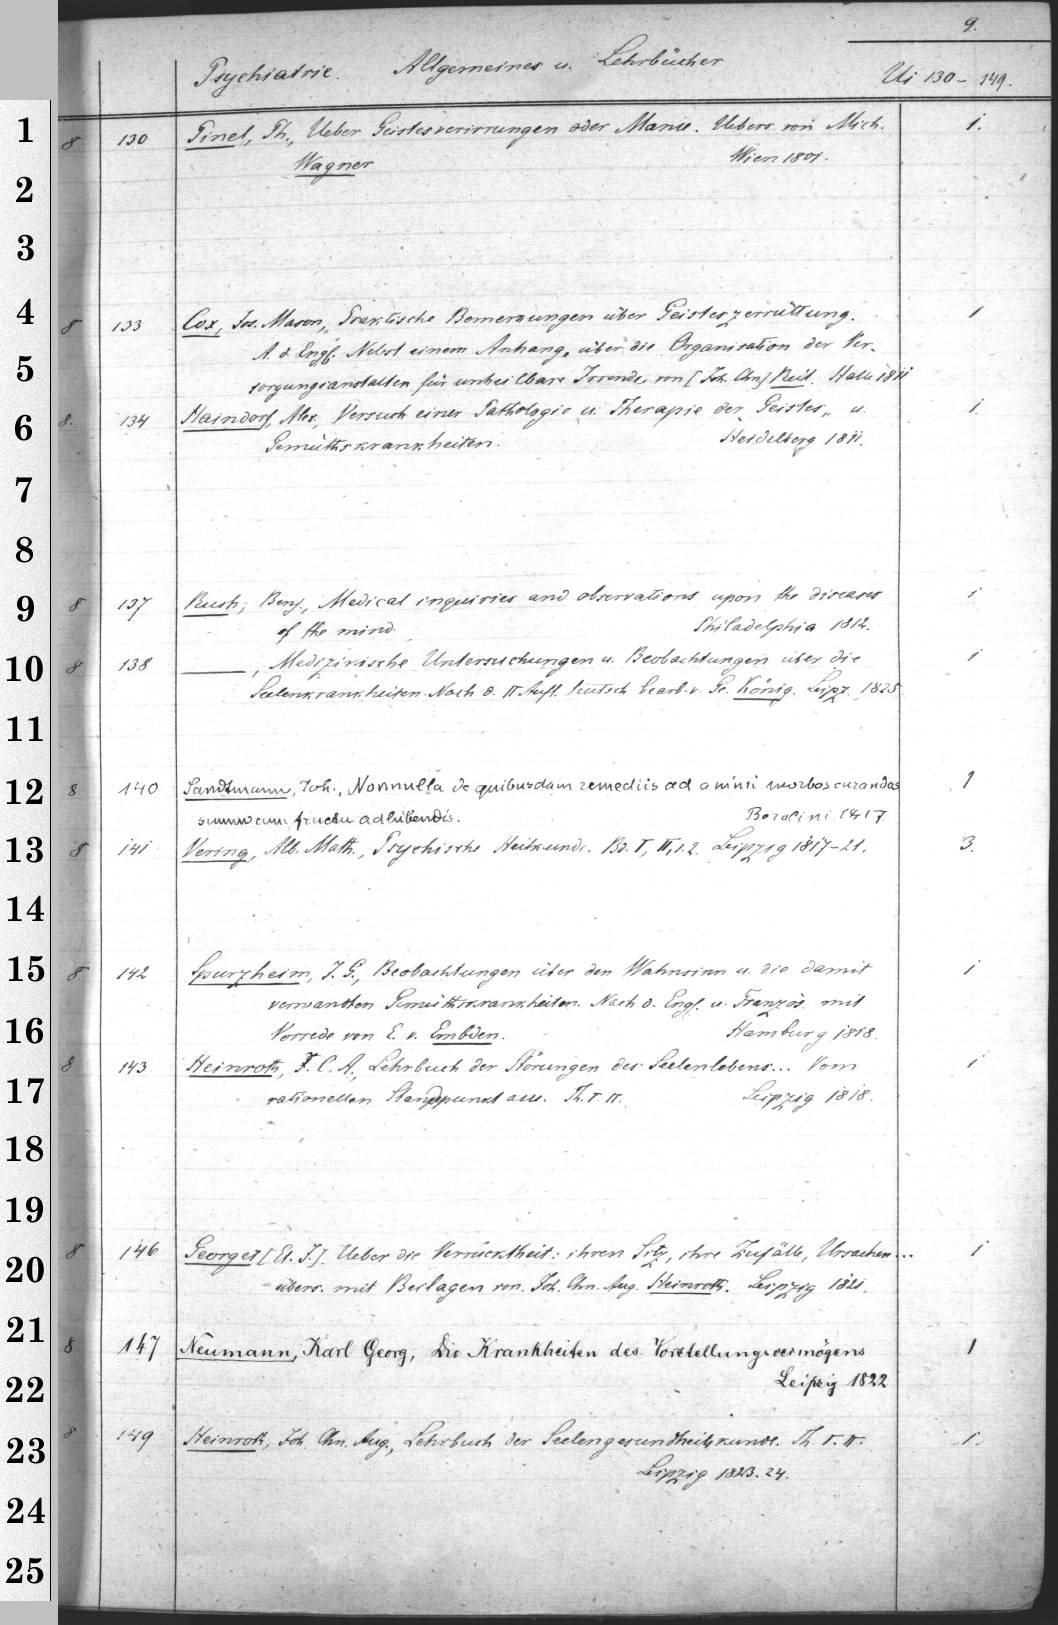 9.
Psychiatrie. Allgemeines u. Lehrbücher Ui 130 - 149.
1 8 130 Pinel, Ph., Ueber Geistesverirrungen oder Manie. Uebers. von Mich. 1.
Wagner Wien 1801.
2
3
4 8 133 Cox, Jos. Mason, Praktische Bemerkungen über Geisteszerrüttung. 1
A. d. Engl. Nebst einem Anhang, über die Organisation der Ver-
5 sorgungsanstalten für unheilbare Irrende, von [Joh. Chn.] Reil. Halle 1811
6 8. 134 Haindorf, Alex., Versuch einer Pathologie u. Therapie der Geistes- u. 1.
Gemüthskrankheiten. Heidelberg 1811.
7
8
9 8 137 Rush, Benj., Medical inquiries and observations upon the diseases 1
of the mind. Philadelphia 1812.
10 8 138 ———, Medizinische Untersuchungen u. Beobachtungen über die 1
Seelenkrankheiten. Nach d. II Aufl. teutsch bearb. v. Ge. König. Leipz. 1825.
11
12 8 140 Sandtmann, Joh., Nonnulla de quibusdam remediis ad animi morbos curandos 1
summo cum fructu adhibendis. Berolini 1817
13 8 141 Vering, Alb. Math., Psychische Heilkunde. Bd. I, II,1.2. Leipzig 1817-21. 3.
14
15 8 142 Spurzheim, J. G., Beobachtungen über den Wahnsinn u. die damit 1
verwandten Gemüthskrankheiten. Nach d. Engl. u. Französ. mit
16 Vorrede von E. v. Embden. Hamburg 1818.
8 143 Heinroth, J. C. A., Lehrbuch der Störungen des Seelenlebens... Vom 1
17 rationellen Standpunkt aus. Th. I. II. Leipzig 1818.
18
19
20 8 146 Georget [Et. J.]. Ueber die Verrücktheit: ihren Sitz, ihre Zufälle, Ursachen... 1
übers. mit Beilagen von Joh. Chn. Aug. Heinroth. Leipzig 1821.
21 8 147 Neumann, Karl Georg, Die Krankheiten des Vorstellungsvermögens 1
22 Leipzig 1822
23 8 149 Heinroth, Joh. Chn. Aug., Lehrbuch der Seelengesundheitskunde. Th. I. II. 1.
Leipzig 1823. 24.
24
25